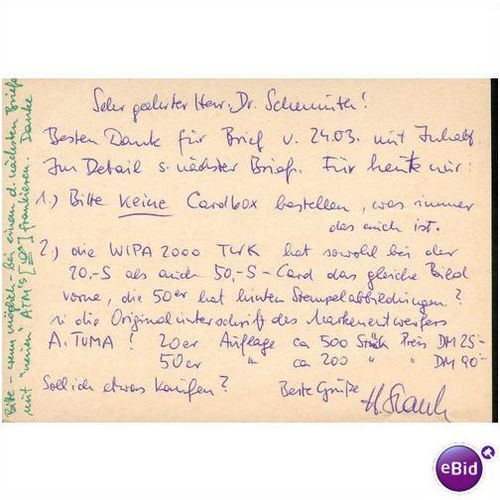 Sehr geehrter Herr Dr. Schemuth!
Besten Dank für Brief v. 24.03. mit Inhalt.
Im Detail s. nächster Brief. Für heute nur:
1.) Bitte keine Cardbox bestellen, was immer
das auch ist.
2.) die WIPA 2000 TWK hat sowohl bei der
20,-S als auch 50,-S-Card das gleiche Bild
vorne, die 50er hat hinten Stempelabbildungen?
die Originalunterschrift des Markenentwerfers
A. TUMA! 20er Auflage ca 500 Stück Preis DM 25-
50er " ca 200 " " DM 90-
Soll ich etwas kaufen? Beste Grüße
Bitte - wenn möglich - bei einem d. nächsten Briefe
mit "meinen" ATM's frankieren. Danke
eBid